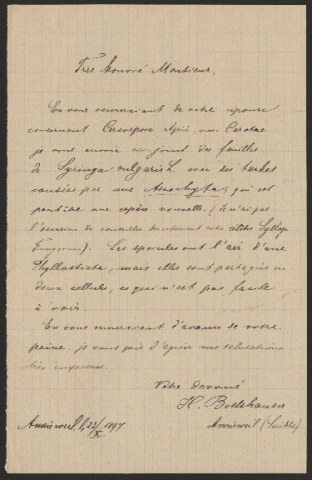 Très honoré Monsieur,
En vous remerciant de votre réponse
concernant Cercospora Apii, var. Carotae
je vous envoie ci-joint des feuilles
de Syringa vulgaris L. avec des taches
causées par une Ascochyta, qui est
peut-être une espèce nouvelle. (Je n'ai pas
l'occasion de consulter directement votre célèbre Sylloge
Fungorum). Les sporules ont l'air d'une
Phyllosticta, mais elles sont partagées en
deux cellules, ce qui n'est pas facile
à voir.
En vous remerciant d'avance de votre
peine je vous prie d'agréer mes salutations
très empressées.
Votre dévoué
H. Boltshauser
Amrisweil, 23/X. 1897.
Amrisweil (Suisse)